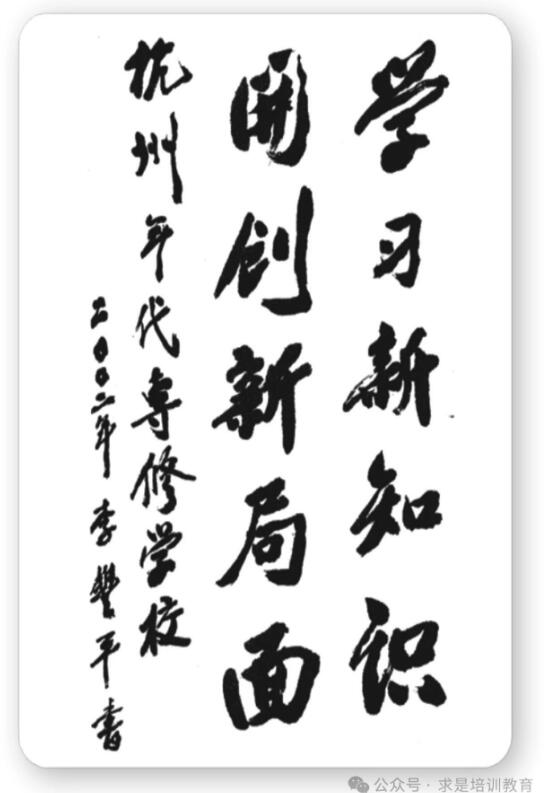 学习新知识
開创新局面
杭州年代専修学校
二〇〇二年 李豐平書
公众号 · 求是培训教育